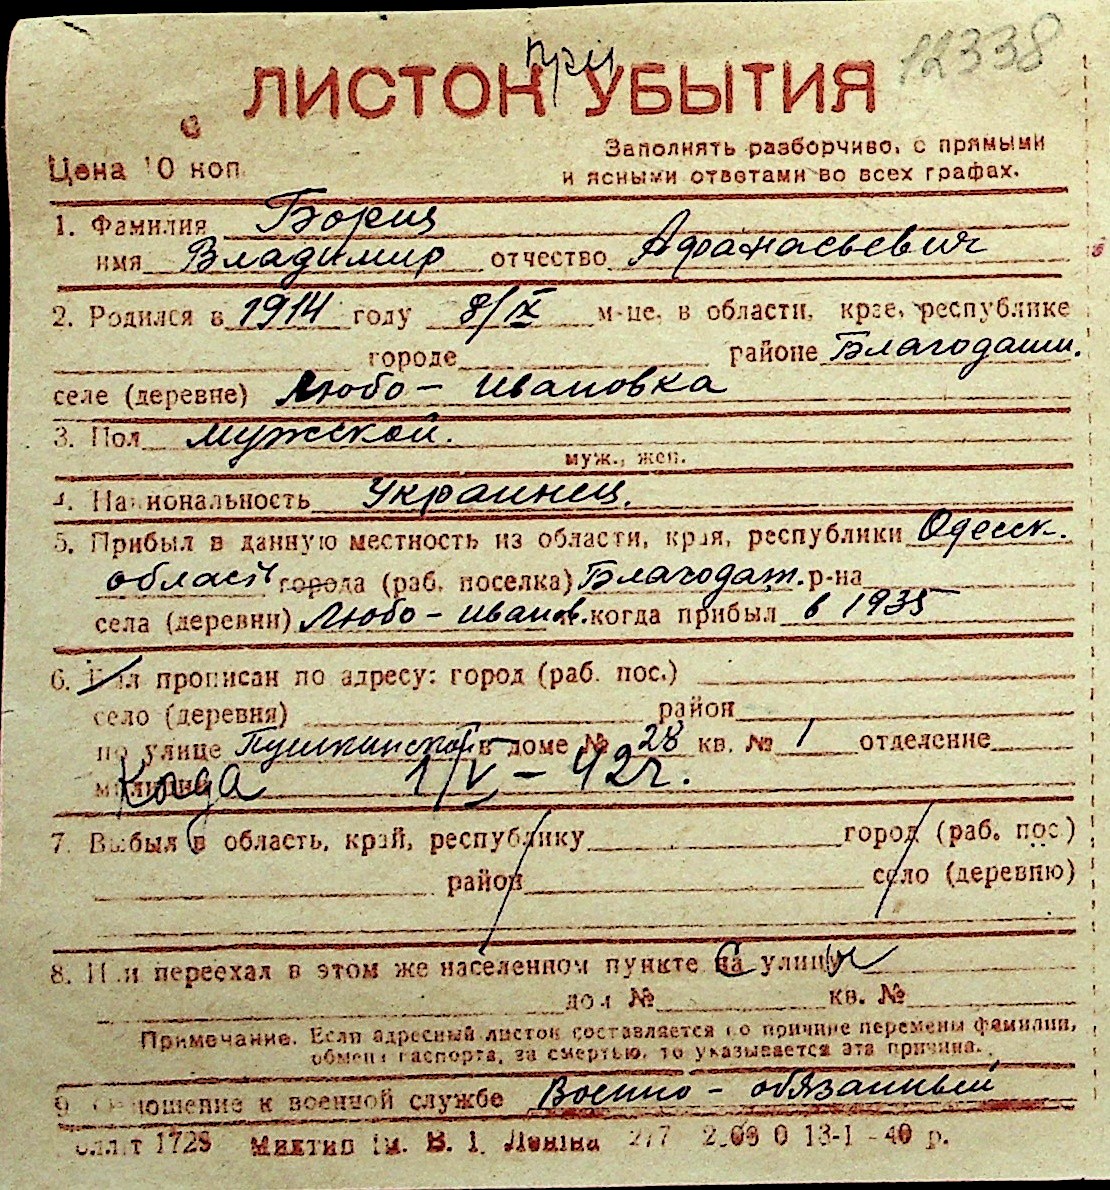 12338
при
ЛИСТОК УБЫТИЯ
Цена 10 коп
Заполнять разборчиво, с прямыми
и ясными ответами во всех графах.
1. Фамилия Бориц
имя Владимир отчество Афанасьевич
2. Родился в 1914 году 8/IX м-це, в области, крае, республике
городе районе Благодатн.
селе (деревне) Любо-Ивановка
3. Пол мужской.
муж., жен.
4. Национальность Украинец.
5. Прибыл в данную местность из области, края, республики Одесск.
област города (раб. поселка) Благодат. р-на
села (деревни) Любо-Иванов. когда прибыл в 1935
6. Был прописан по адресу: город (раб. пос.)
село (деревня) район
по улице Пушкинской в доме № 28 кв. № 1 отделение
милиции Когда 1/V - 42 г.
7. Выбыл в область, край, республику город (раб. пос)
район село (деревню)
8. Или переехал в этом же населенном пункте на улицу С и
дом № кв. №
Примечание. Если адресный листок составляется по причине перемены фамилии,
обмена паспорта, за смертью, то указывается эта причина.
9. Отношение к военной службе Военно-обязанный
1728 ім. В. І. Леніна 277 13-I-40 р.